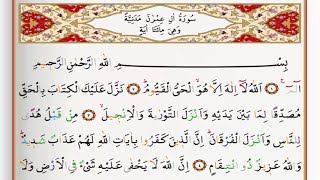 سُورَةُ اٰلِ عِمْرٰنَ مَدَنِيَّةٌ
وَهِيَ مِائَتَا اٰيَةٍ
بِسْمِ اللّٰهِ الرَّحْمٰنِ الرَّحِيمِ
الٓمٓ ۞ اَللّٰهُ لَٓا اِلٰهَ اِلَّا هُوَ الْحَيُّ الْقَيُّومُ ۞ نَزَّلَ عَلَيْكَ الْكِتَابَ بِالْحَقِّ
مُصَدِّقًا لِمَا بَيْنَ يَدَيْهِ وَاَنْزَلَ التَّوْرٰيةَ وَالْاِنْجِيلَ ۞ مِنْ قَبْلُ هُدًى
لِلنَّاسِ وَاَنْزَلَ الْفُرْقَانَ اِنَّ الَّذِينَ كَفَرُوا بِاٰيَاتِ اللّٰهِ لَهُمْ عَذَابٌ شَدِيدٌ
وَاللّٰهُ عَزِيزٌ ذُو انْتِقَامٍ ۞ اِنَّ اللّٰهَ لَا يَخْفٰى عَلَيْهِ شَيْءٌ فِي الْاَرْضِ وَلَا